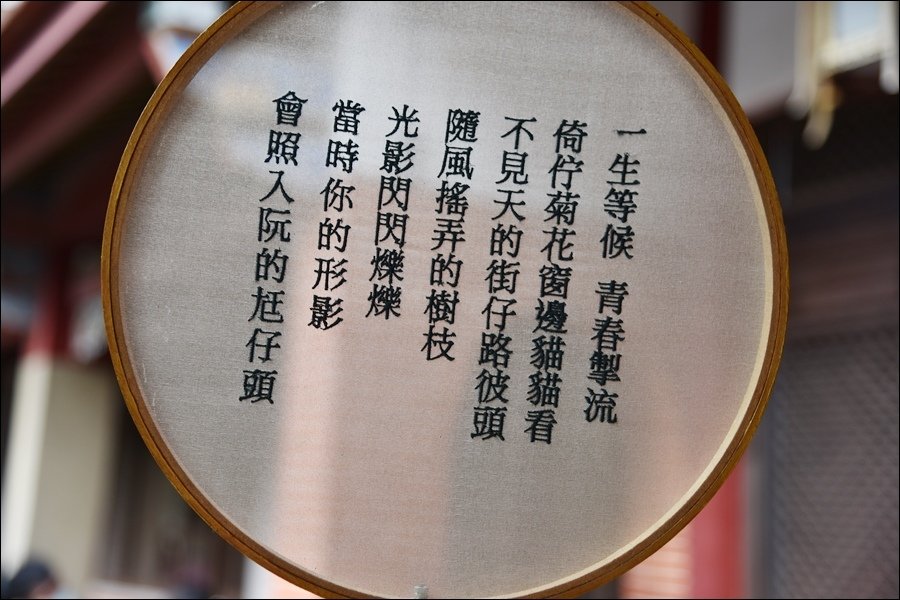 一生等候 青春掣流
倚佇菊花窗邊貓貓看
不見天的街仔路彼頭
隨風搖弄的樹枝
光影閃閃爍爍
當時你的形影
會照入阮的尪仔頭